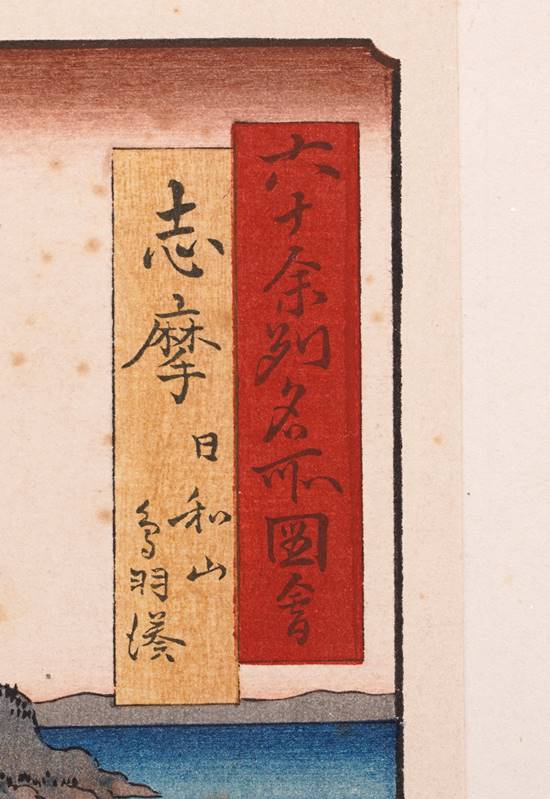 六十余州名所図會
志摩
日和山
鳥羽湊